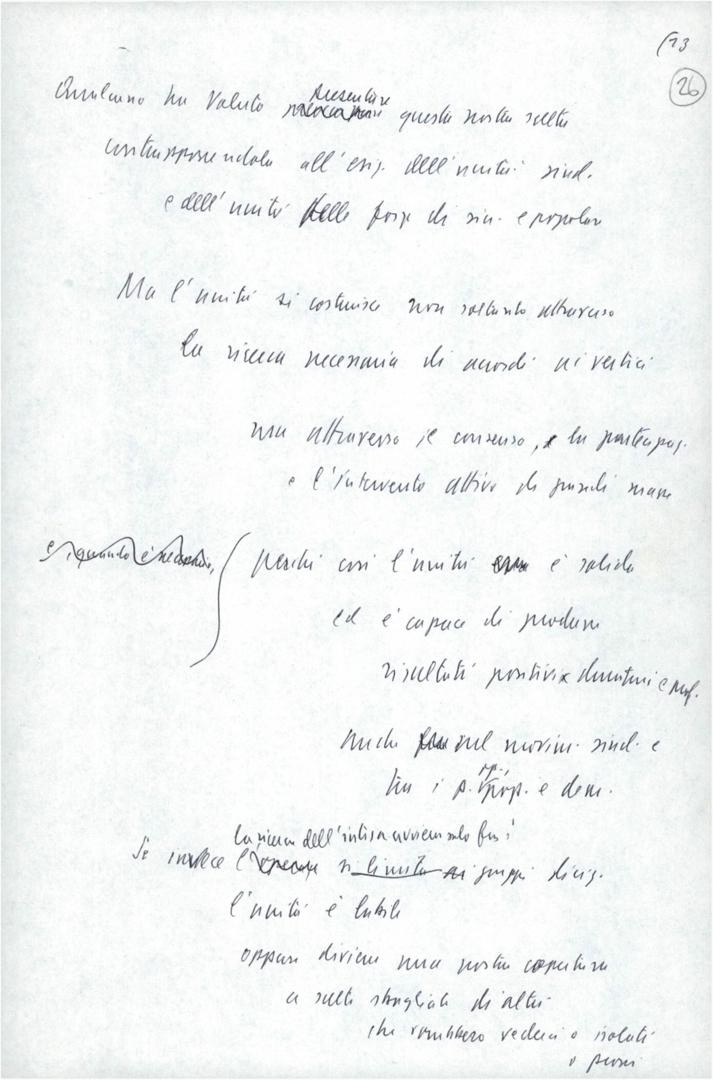 26
Qualcuno ha voluto presentare questa nostra scelta
contrapponendola all'esig. dell'unità sind.
e dell'unità delle forze di sin. e popolari
Ma l'unità si costruisce non soltanto attraverso
la ricerca necessaria di accordi ai vertici
ma attraverso il consenso, la partecipaz.
e l'intervento attivo di grandi masse
e, quando è necessario,
perché così l'unità è solida
ed è capace di produrre
risultati positivi duraturi e
anche nel movim. sind. e
tra i p. pop. e dem.
la ricerca dell'intesa avviene solo fra i
Se invece l' si limita ai gruppi dirig.
l'unità è labile
oppure diviene una nostra copertura
a scelte sbagliate di altri
che vorrebbero vederci o isolati
o proni